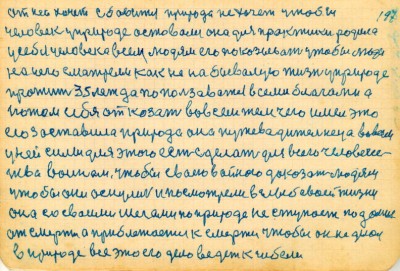 от неё хочет свобится природа не хочет чтобы 197
человек у природе оставался она для практики родила
у себя человека всем людям его показывать чтобы люди
на него смотрели как не на бывалую жизнь у природе
прошит 35 лет да попользоватся всеми благами а
потом себя отказат во всем тем чего имел это
его заставила природа она путеводителница во всем
у ней силы для этого ест сделат для всего человечес-
тва воином, чтобы своего ватного доказат людям
чтобы они оснулис и посмотрели в свою жизни
она со своими шегами по природе не ступает подалше
от смерти а приближается к смерти чтобы он не
в природе все это его дело ведет к гибели